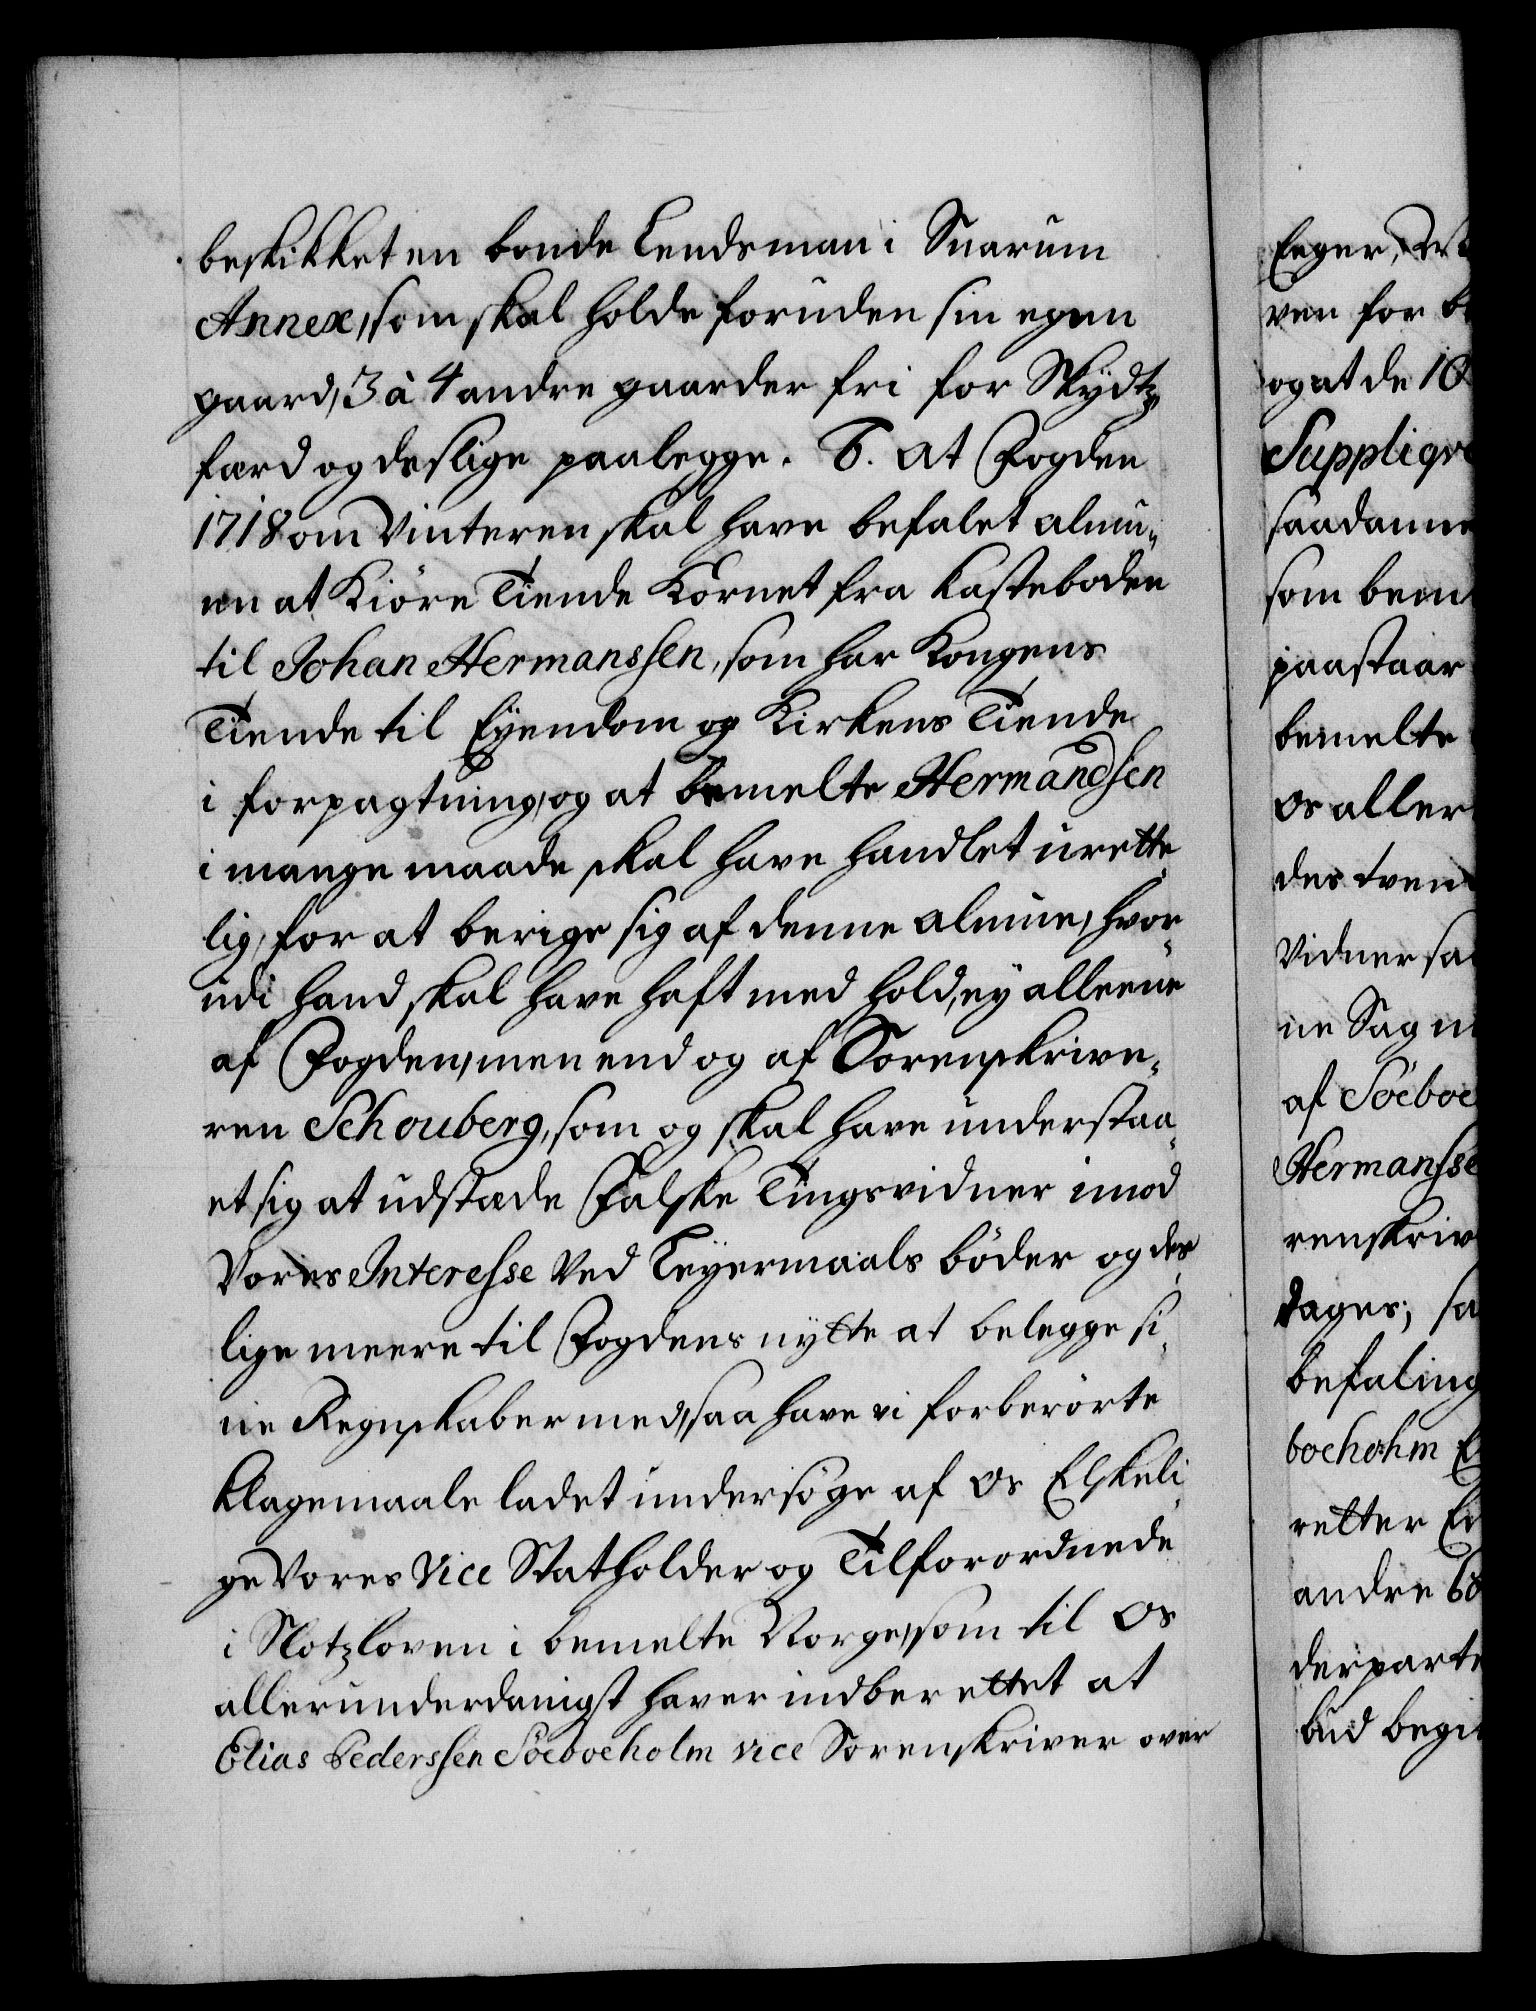 beskikket en bonde Lendsman i Snarum
Annex, som skal holde foruden sin egen
gaard, 3 à 4 andre gaarder fri for Skydtz
færd og deslige paalegge. 6. At Fogden
1718 om Vinteren skal have befalet almu-
en at Kiöre Tiende Kornet fra Kasteboden
til Johan Hermanssen, som har Kongens
Tiende til Eyendom og Kirkens Tiende
i forpagtning, og at bemelte Hermandsen
i mange maade skal have handlet urette
lig, for at berige sig af denne almue, hvor-
udi hand skal have haft med hold, ey alleene
af Fogden, men end og af Sorenskrive-
ren Schouberg, som og skal have understaa-
et sig at udstæde Falske Tingsvidner imod
Vores Interesse Ved Leyermaals böder og des-
lige meere til Fogdens nytte at belegge si-
ne Regnskaber med, saa have vi forberörte
Klagemaale ladet undersöge af Os Elskeli-
ge Vores Vice Statholder og Tilforordnede
i Slotzloven i bemelte Norge, som til Os
allerunderdanigst haver indberettet at
Elias Pederssen Söeboeholm vice Sorenskriver over
Eeger,
ven for
og at de 10
Suppliqve
saadanne
som bem
paastaar
bemelte
Os aller
des tven
Vidner saa
ne Sag
af Söeboe
Hermansse
renskriv
dages; sa
befaling
boeholm
retter
andre
derparte
bud begi